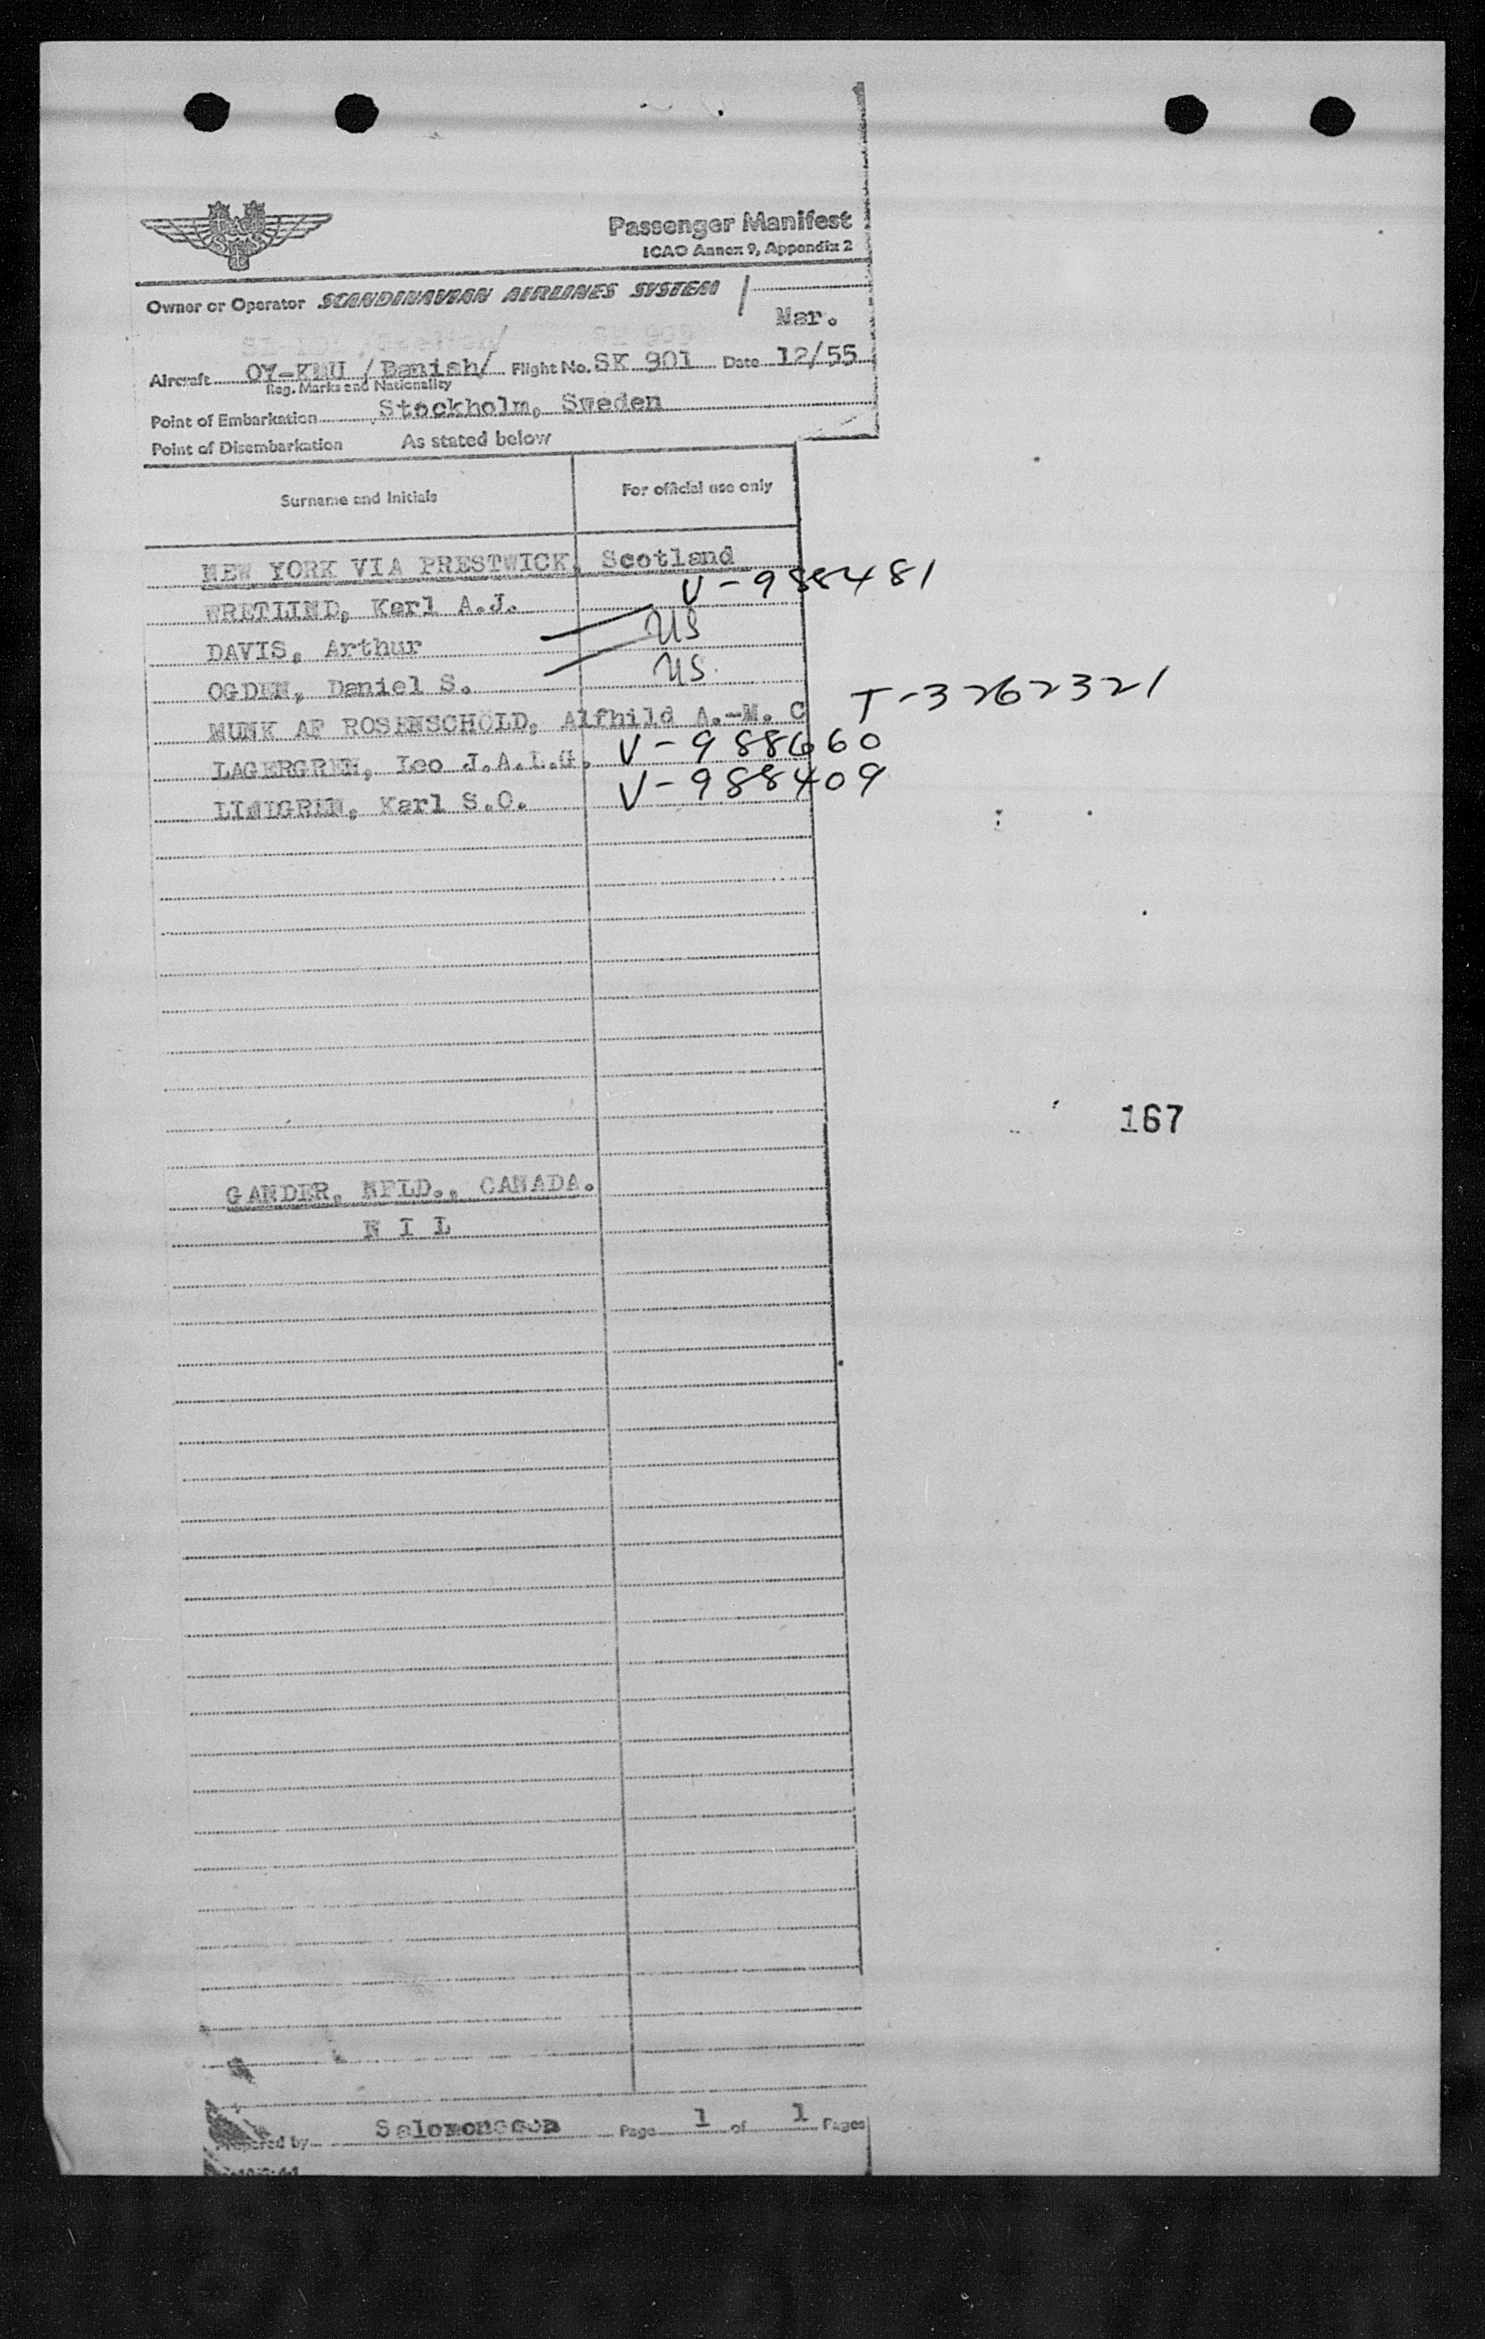 Passenger Manifest
ICAO Annex 9, Appendix 2
Owner or Operator SCANDINAVIAN AIRLINES SYSTEM
Mar.
Aircraft OY-KMU /Danish/ Flight No. SK 901 Date 12/55
Reg. Marks and Nationality
Point of Embarkation Stockholm, Sweden
Point of Disembarkation As stated below
Surname and Initials For official use only
NEW YORK VIA PRESTWICK, Scotland
WRETLIND, Karl A.J. V-988481
DAVIS, Arthur US
OGDEN, Daniel S. US
MUNK AF ROSENSCHÖLD, Alfhild A.-M. C T-3262321
LAGERGREN, Leo J.A.L.G. V-988660
LINDGREN, Karl S.O. V-988409
167
GANDER, NFLD., CANADA.
N I L
Prepared by Salomonsson Page 1 of 1 Pages